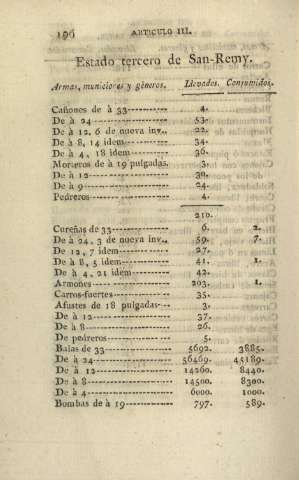 196 ARTICULO III.
Estado tercero de San-Remy.
Armas, municiones y géneros. Llevados. Consumidos.
Cañones de à 33 4.
De à 24 53.
De à 12, 6 de nueva inv.. 22.
De à 8, 14 idem 34.
De à 4, 18 idem 36.
Morteros de à 19 pulgadas. 3.
De à 12 30.
De à 9 24.
Pedreros 4.
210.
Cureñas de 33 6. 2.
De à 24, 3 de nueva inv.. 59. 7.
De 12, 7 idem 27.
De à 8, 5 idem 41. 1.
De à 4, 21 idem 42.
Armones 203. 1.
Carros-fuertes 35.
Afustes de 18 pulgadas 3.
De à 12 37.
De à 8 26.
De pedreros 5.
Balas de 33 5692. 3885.
De à 24 56469. 45189.
De à 12 14260. 8440.
De à 8 14500. 8300.
De à 4 6000. 1000.
Bombas de à 19 797. 589.